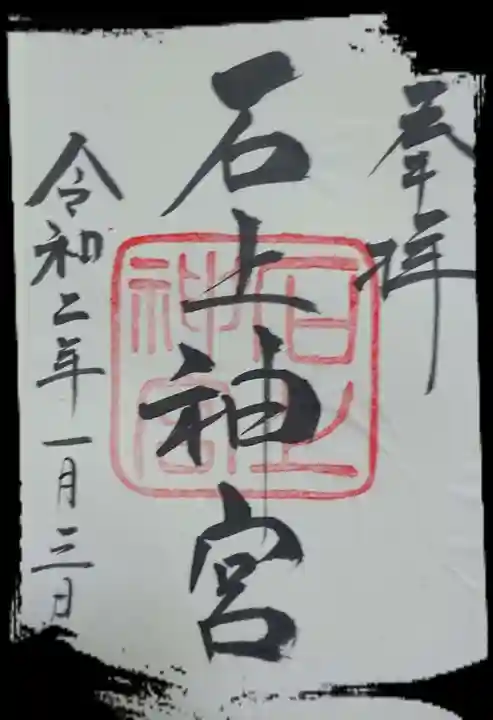 奉拝
石上神宮
石上
神宮
令和二年一月三日